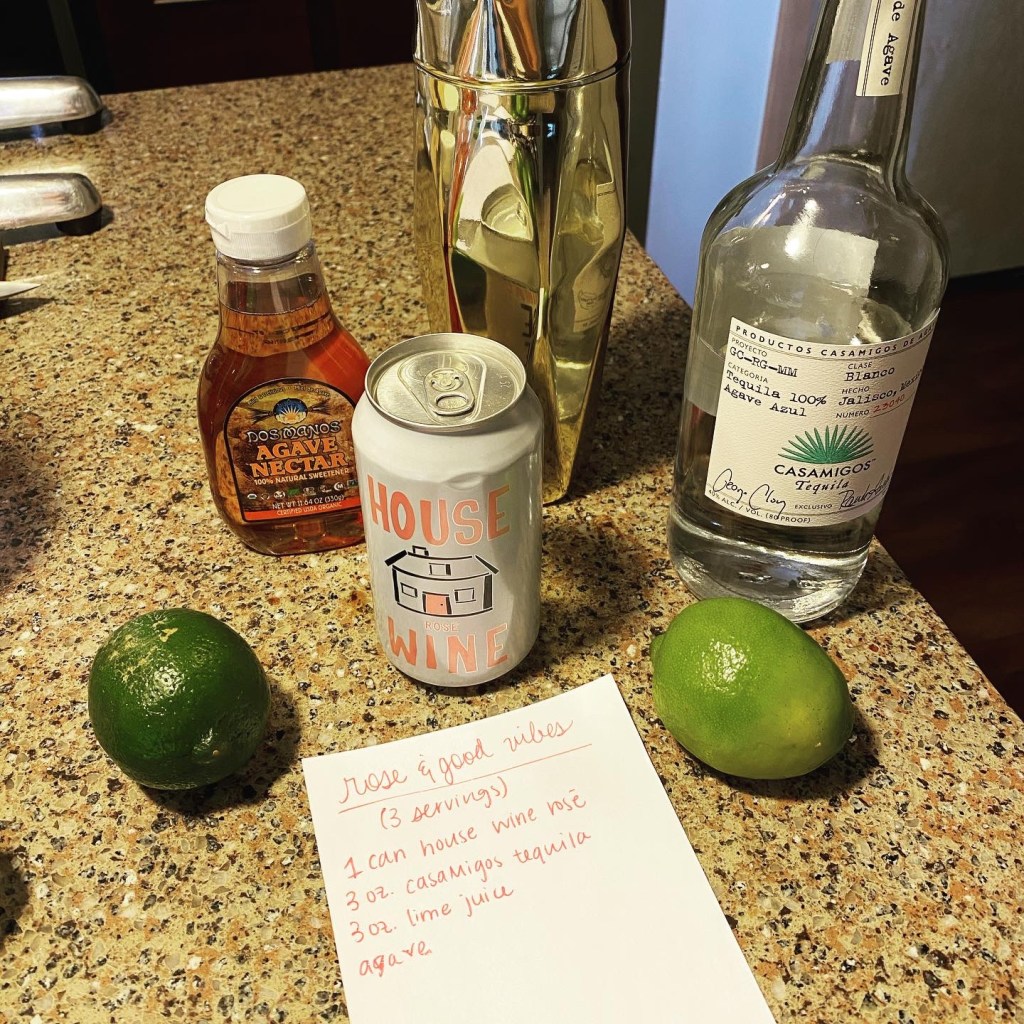 de Agave
PRODUCTOS CASAMIGOS DE
PROYECTO
GC-RG-MM
CLASE
Blanco
CATEGORIA
Tequila 100%
Agave Azul
HECHO
Jalisco, Mexico
NUMERO
CASAMIGOS
Tequila
40% ALC./VOL. (80 PROOF)
EXCLUSIVO
DOS MANOS
AGAVE
NECTAR
100% NATURAL SWEETENER
NET WT 11.64 OZ (330g)
CERTIFIED USDA ORGANIC
HOUSE
ROSÉ
WINE
rose & good vibes
(3 servings)
1 can house wine rosé
3 oz. casamigos tequila
3 oz. lime juice
agave